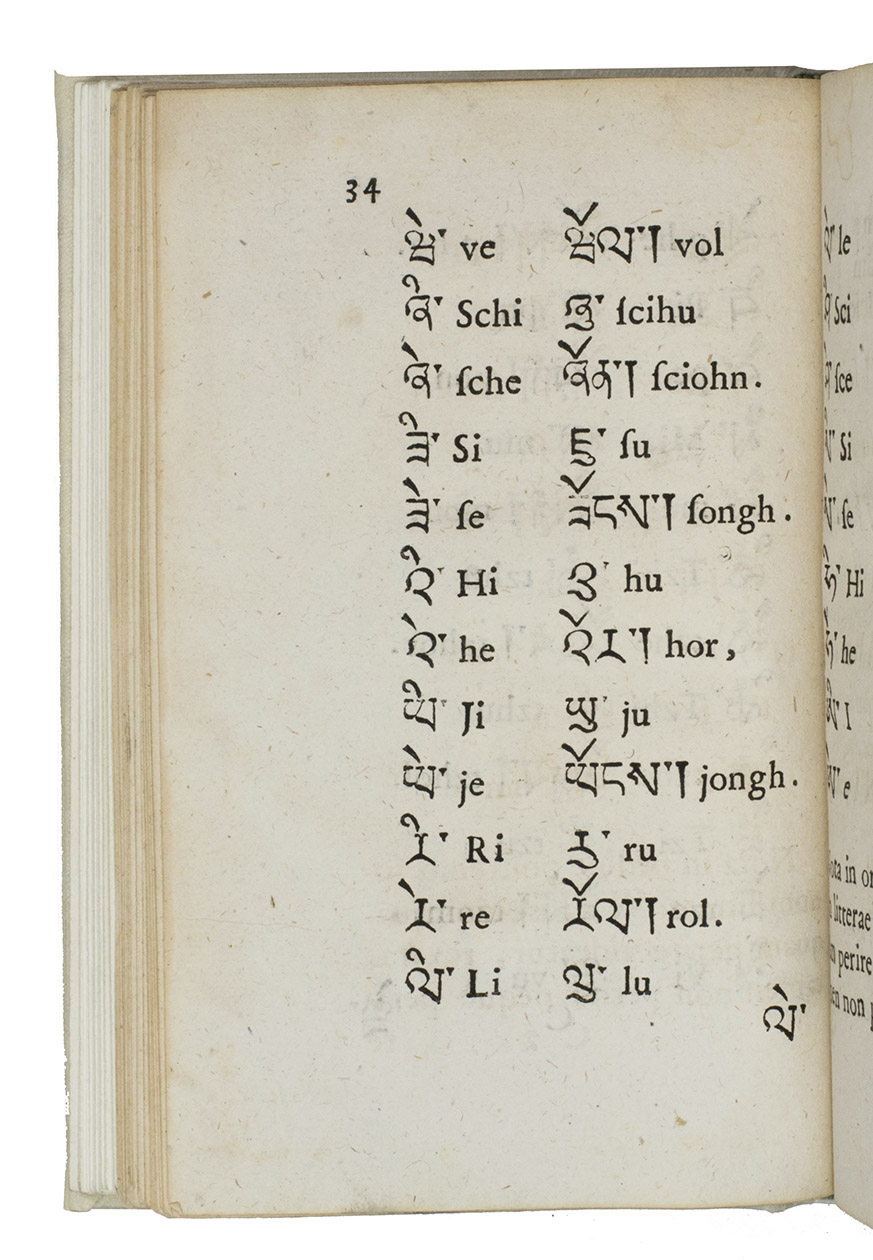 34
ཝེ་ ve ཝོལ་། vol
ཞི་ Schi ཞུ་ ſcihu
ཞེ་ ſche ཞོན་། ſciohn.
ཟི་ Si ཟུ་ ſu
ཟེ་ ſe ཟོངས་། ſongh.
འི་ Hi འུ་ hu
འེ་ he འོར་། hor,
ཡི་ Ji ཡུ་ ju
ཡེ་ je ཡོངས་། jongh.
རི་ Ri རུ་ ru
རེ་ re རོལ་། rol.
ལི་ Li ལུ་ lu
ལེ་
le
Sci
ſce
Si
ſe
Hi
he
I
e
in
litterae
perire
non